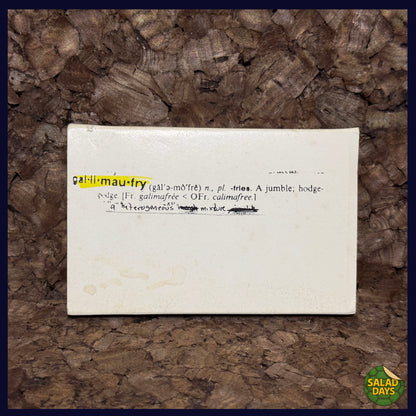 gal·li·mau·fry (găl'ə-mô'frē) n., pl. -fries. A jumble; hodge-
podge. [Fr. galimafrée < OFr. calimafree.]
a heterogeneous mixture
SALAD
DAYS